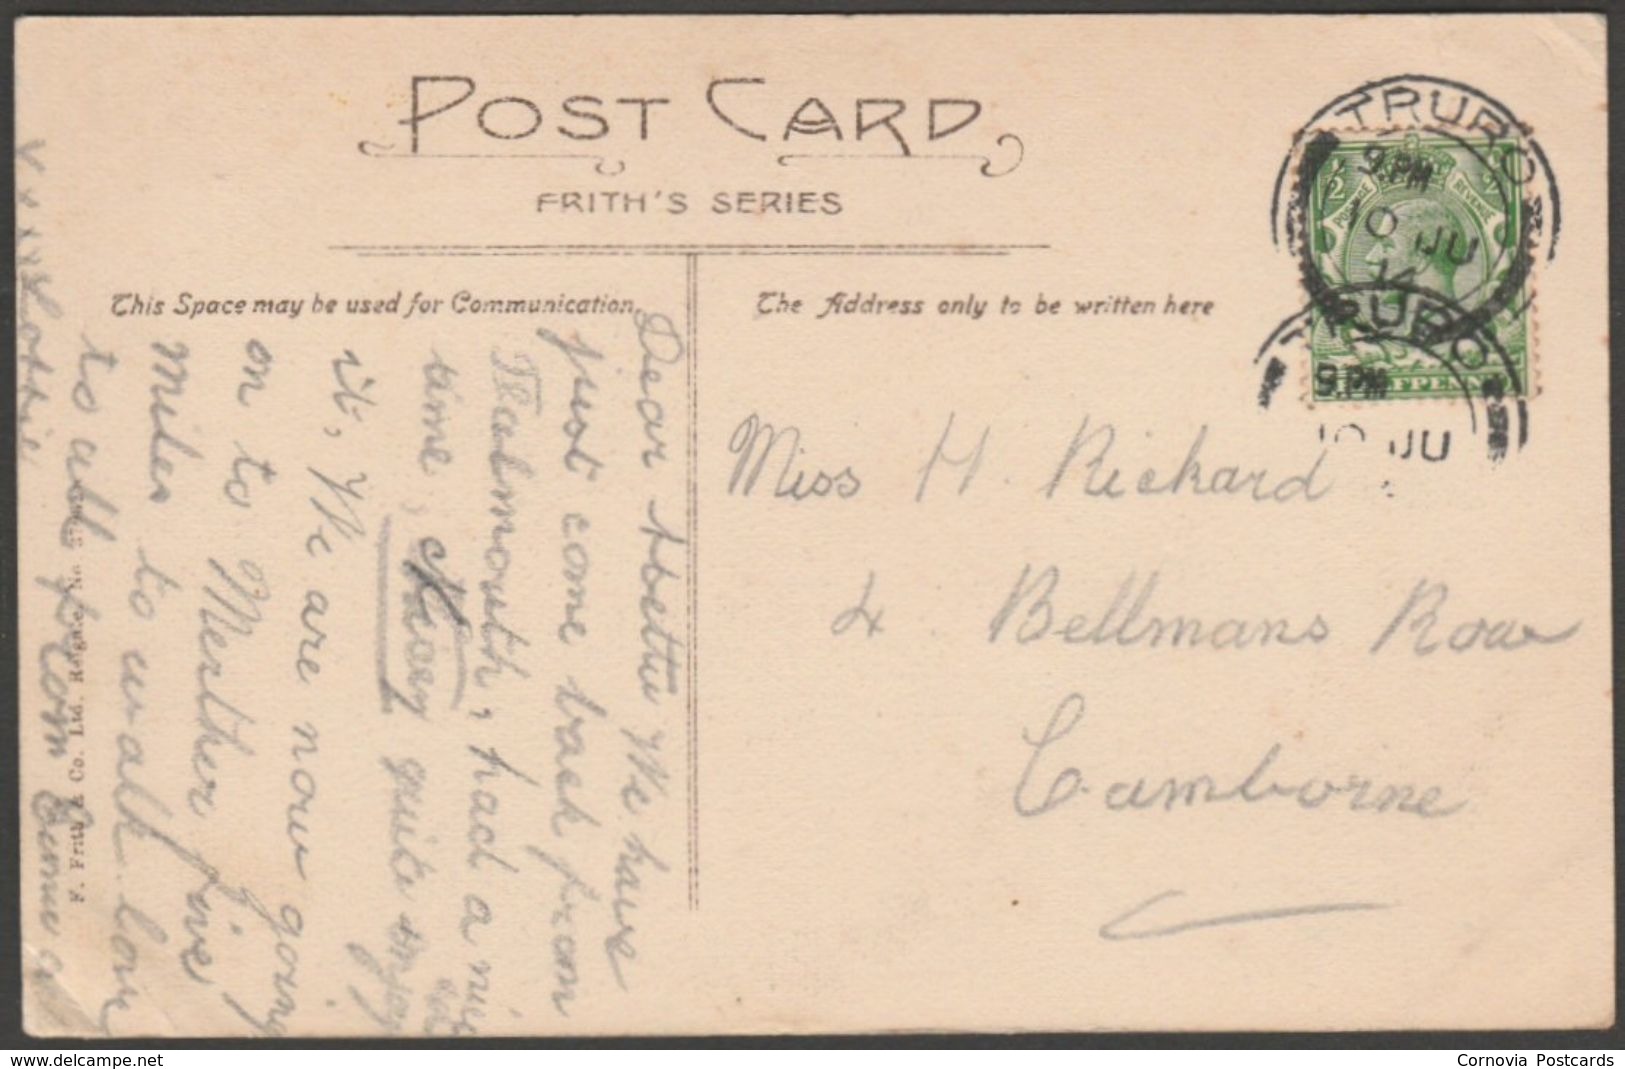 POST CARD
FRITH'S SERIES
This Space may be used for Communication.
The Address only to be written here
TRURO
9.PM
10 JU
14
TRURO
9.PM
10 JU
POSTAGE
REVENUE
Miss H. Rickard
4 Bellmans Row
Camborne
Dear Hettie We have
just come back from
Falmouth, had a nice
time, Nancy quite enjoy
it, We are now going
on to Merther five
miles to walk. Love
to all from Emma
Lottie
F. Frith & Co. Ltd. Reigate. No.
Cornovia Postcards
www.delcampe.net